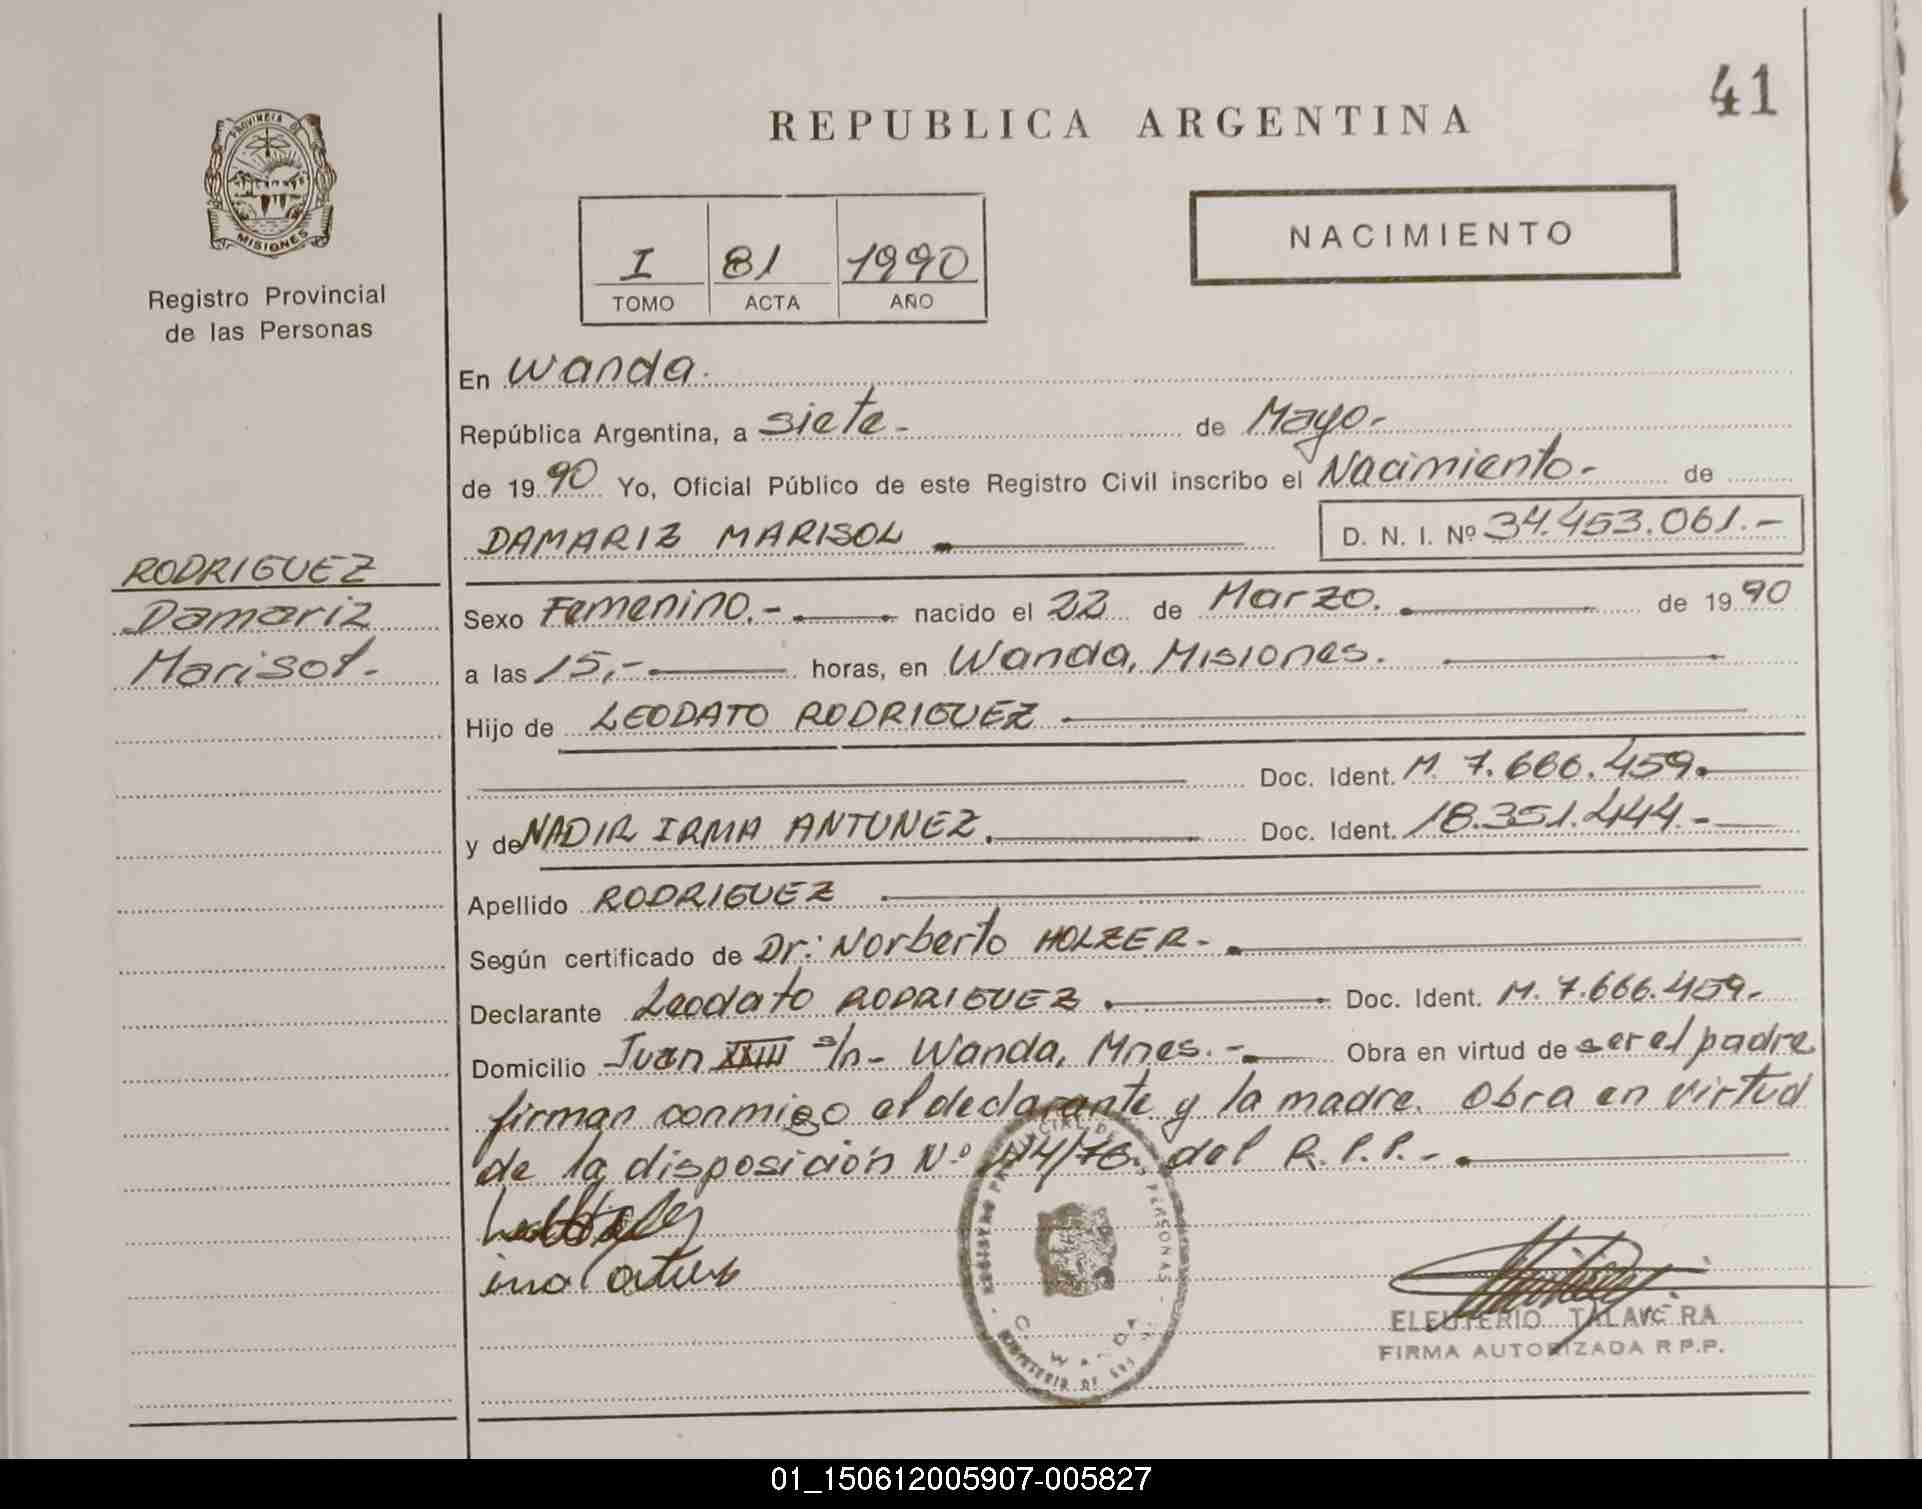 41
REPUBLICA ARGENTINA
PROVINCIA DE
MISIONES
Registro Provincial
de las Personas
I 81 1990
TOMO ACTA AÑO
NACIMIENTO
En Wanda.
República Argentina, a siete- de Mayo-
de 1990 Yo, Oficial Público de este Registro Civil inscribo el Nacimiento- de
DAMARIZ MARISOL D. N. I. Nº 34.453.061.-
RODRIGUEZ
Damariz
Marisol.-
Sexo Femenino.- nacido el 22 de Marzo. de 1990
a las 15,- horas, en Wanda, Misiones.
Hijo de LEODATO RODRIGUEZ
Doc. Ident. M. 7.666.459.
y de NADIR IRMA ANTUNEZ. Doc. Ident. 18.351.444.-
Apellido RODRIGUEZ
Según certificado de Dr: Norberto HOLZER-
Declarante Leodato RODRIGUEZ. Doc. Ident. M. 7.666.459.-
Domicilio Juan XXIII s/n- Wanda, Mnes.- Obra en virtud de ser el padre
firman conmigo el declarante y la madre. Obra en virtud
de la disposición N.º /76. del R.P.P.-
ELEUTERIO TALAVERA
FIRMA AUTORIZADA R.P.P.
WANDA
01_150612005907-005827